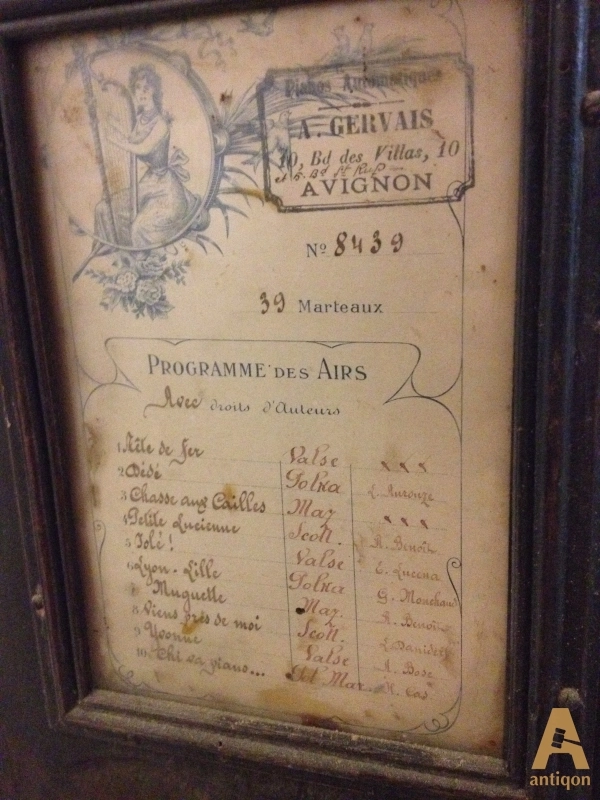 Pianos Automatiques
A. GERVAIS
10, Bd des Villas, 10
AVIGNON
Nº 8439
39 Marteaux
PROGRAMME DES AIRS
Avec droits d'Auteurs
1 Tête de fer Valse " " "
2 Dédé Polka
3 Chasse aux Cailles Maz. " " "
4 Petite Lucienne Scott. A. Benoit
5 Iolé! Valse E. Lucena
6 Lyon-Lille Polka G. Monchaud
7 Muguette Maz. A. Benoit
8 Viens près de moi Scott.
9 Yvonne Valse A. Bosc
10 Maz.
A
antiqon